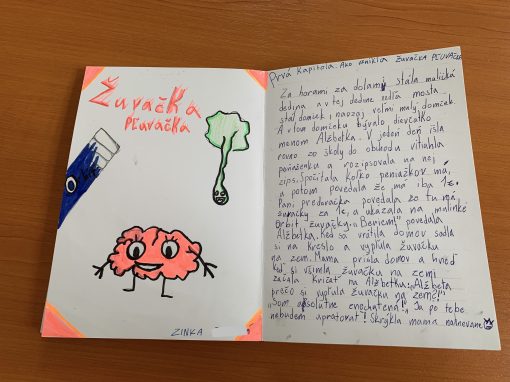 Žuvačka
Pľuvačka
ZINKA
Prvá Kapitola: Ako vznikla žuvačka PĽUVAČKA
Za horami za dolami stála maličká
dedina a v tej dedine vedľa mosta
stál domček i naozaj veľmi malý domček.
A v tom domčeku bývalo dievčatko
menom Alžbetka. V jeden deň išla
rovno zo školy do obchodu vitiahla
peňaženku a rozipsovala na nej
zips. Spočítala koľko peniažkov má,
a potom povedala že má iba 1€.
Pani predavačka povedala že tu má
žuvačky za 1€, a ukázala na malinké
orbit žuvačky. „Beriem!" povedala
Alžbetka. Keď sa vrátila domov sadla
si na kreslo a vypľula žuvačku
na zem. Mama prišla domov a hneď
keď si všimla žuvačku na zemi
začala kričať na Alžbetku: „Alžbeta
prečo si vypľula žuvačku na zem?!"
„Som absolutne znechutená! Ja po tebe
nebudem upratovať! Skríkla mama nahnevane